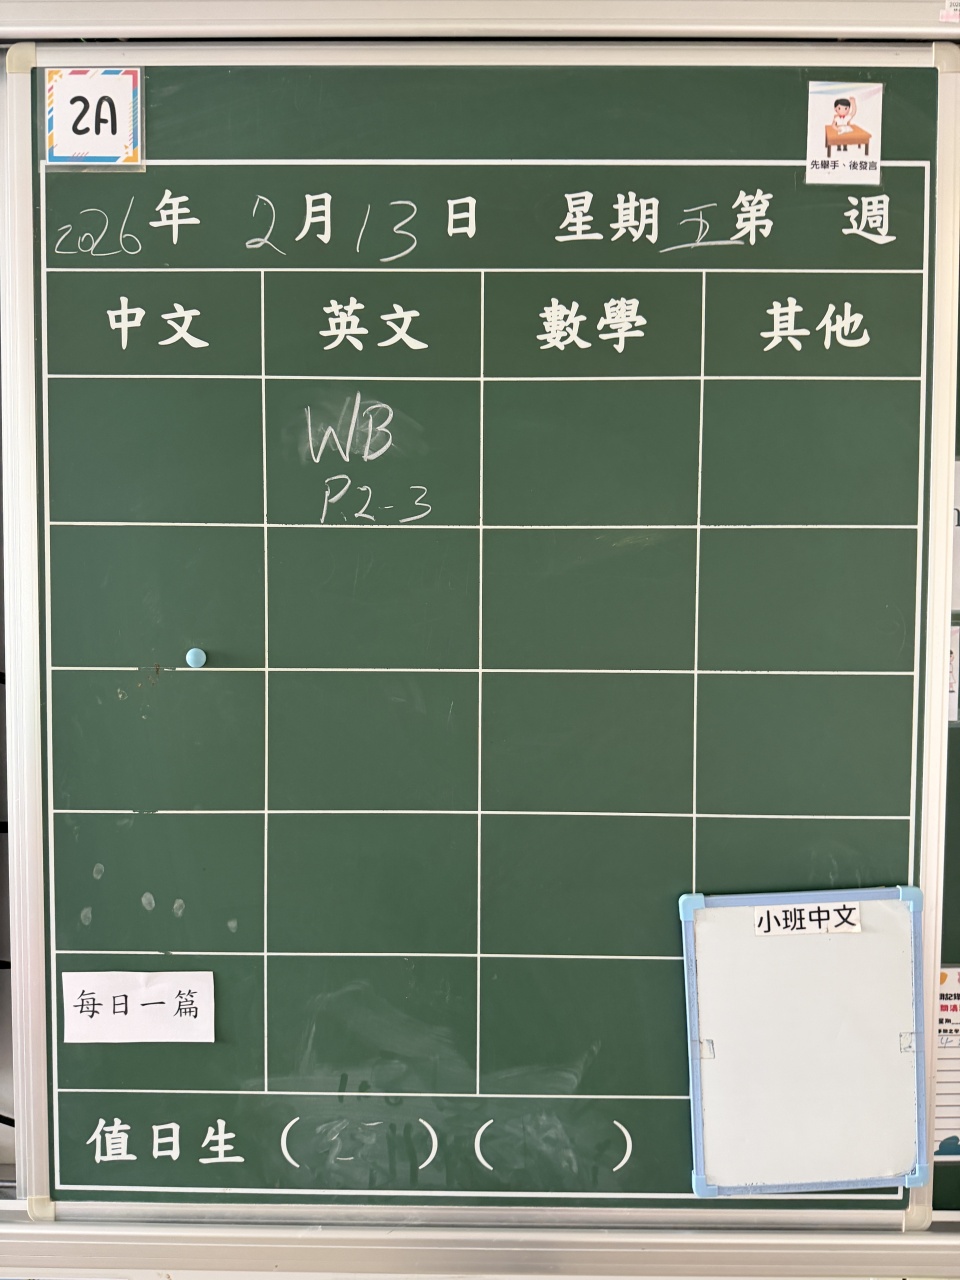 2A
先舉手、後發言
2026年 2月13日 星期五第 週
中文 英文 數學 其他
WB
P.2-3
小班中文
每日一篇
值日生 ( ) ( )